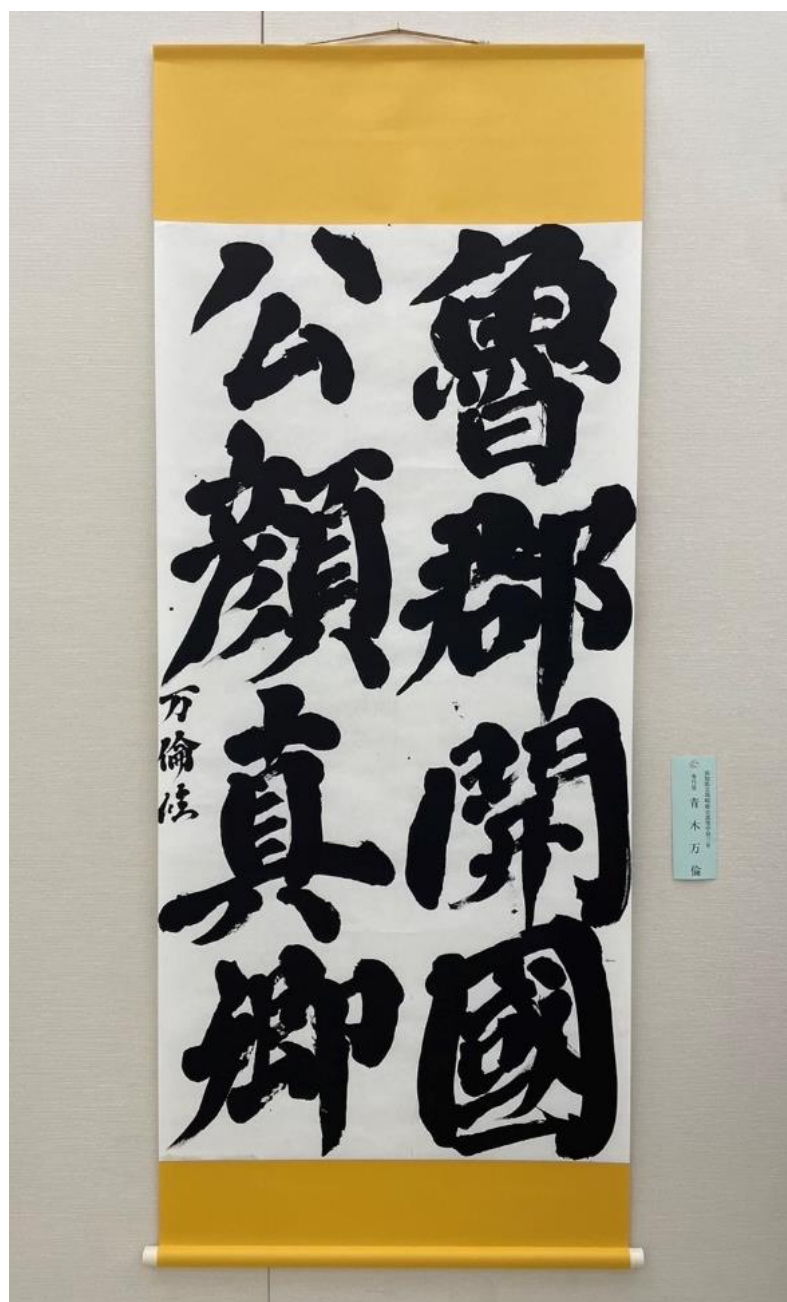 魯郡開國
公顔真卿
万倫臨
青木万倫